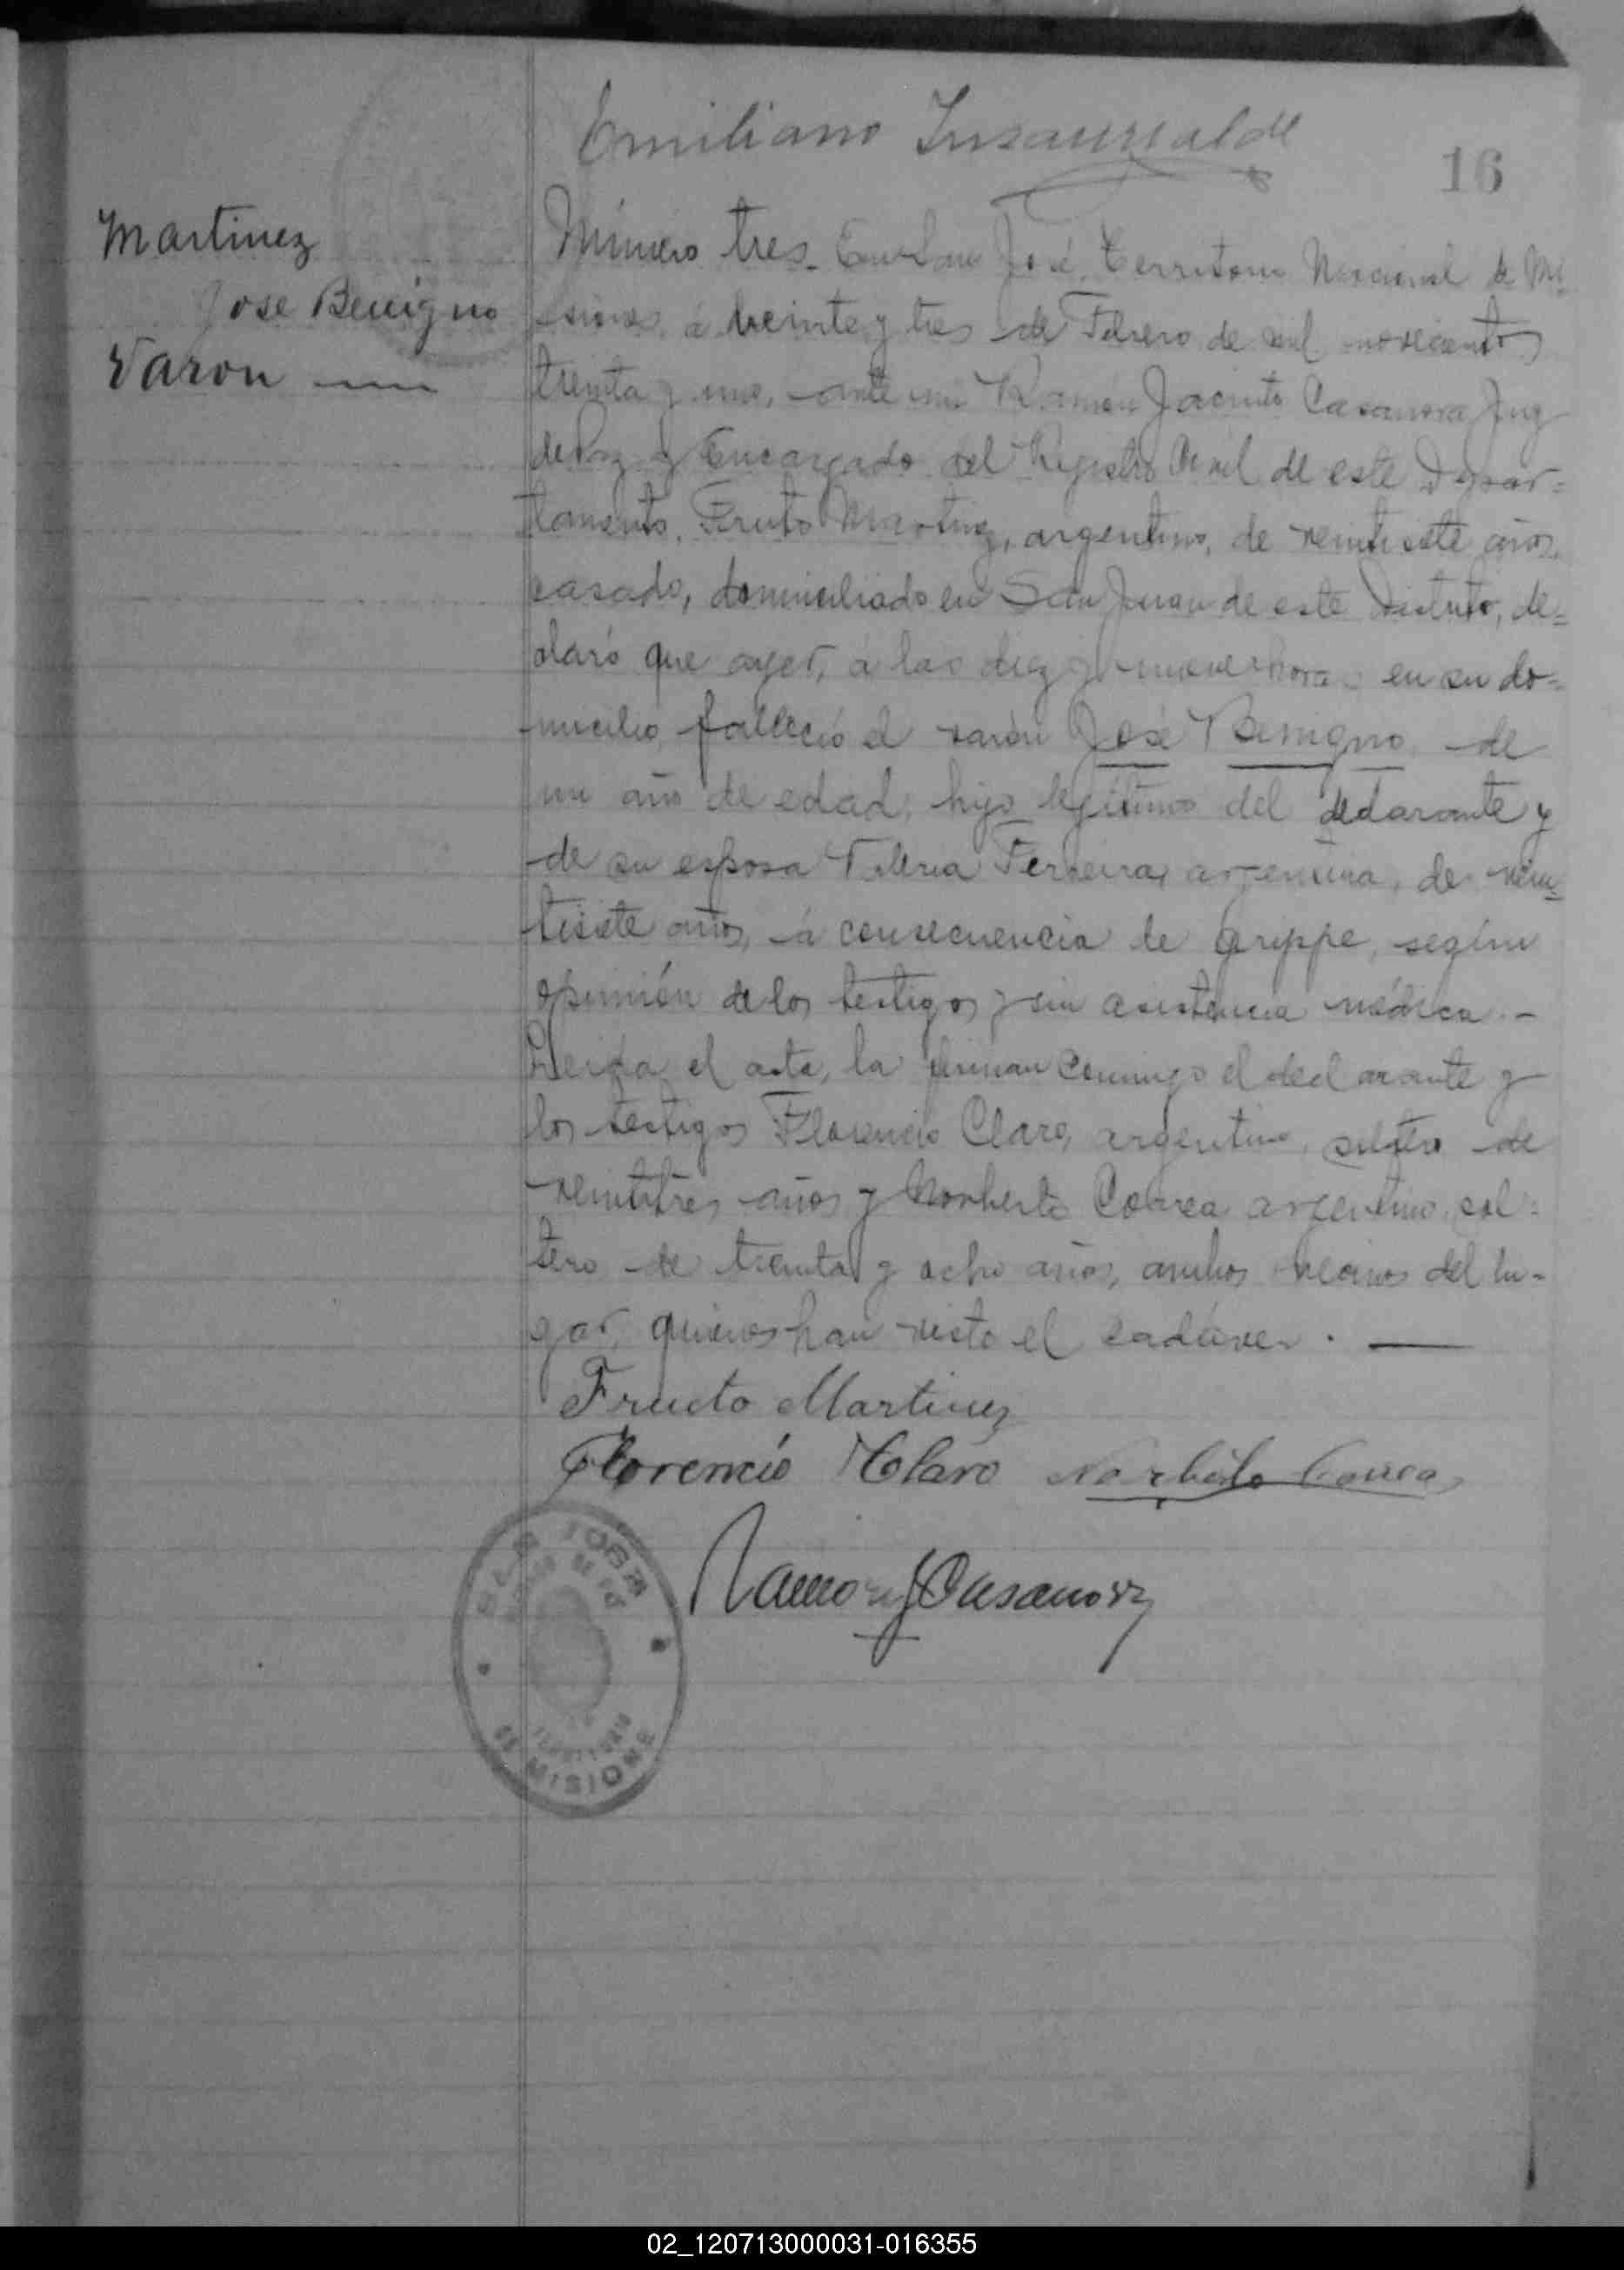 Emiliano Insaurralde
16
Martinez
Jose Benigno
Varon
Número tres. En San José, Territorio Nacional de Mi-
siones, á veinte y tres de Febrero de mil novecientos
treinta y uno, ante mi Ramón Jacinto Casanova Juez
de Paz y Encargado del Registro Civil de este Depar=
tamento, Fruto Martinez, argentino, de veintisiete años,
casado, domiciliado en San Juan de este Distrito, de=
claró que ayer, á las diez y nueve horas en su do=
micilio, falleció el varón José Benigno de
un año de edad, hijo legitimo del declarante y
de su esposa Ferreira, argentina, de vein=
tisiete años, á consecuencia de grippe, según
opinión de los testigos y sin asistencia médica.-
Leida el acta, la firman conmigo el declarante y
los testigos Florencio Claro, argentino, soltero de
veintitres años y Norberto Correa argentino, sol=
tero de treinta y ocho años, ambos vecinos del lu-
gar, quienes han visto el cadáver. —
Fructo Martinez
Florencio Claro Norberto Correa
Ramon J Casanova
TERRITORIO
DE MISIONES
02_120713000031-016355